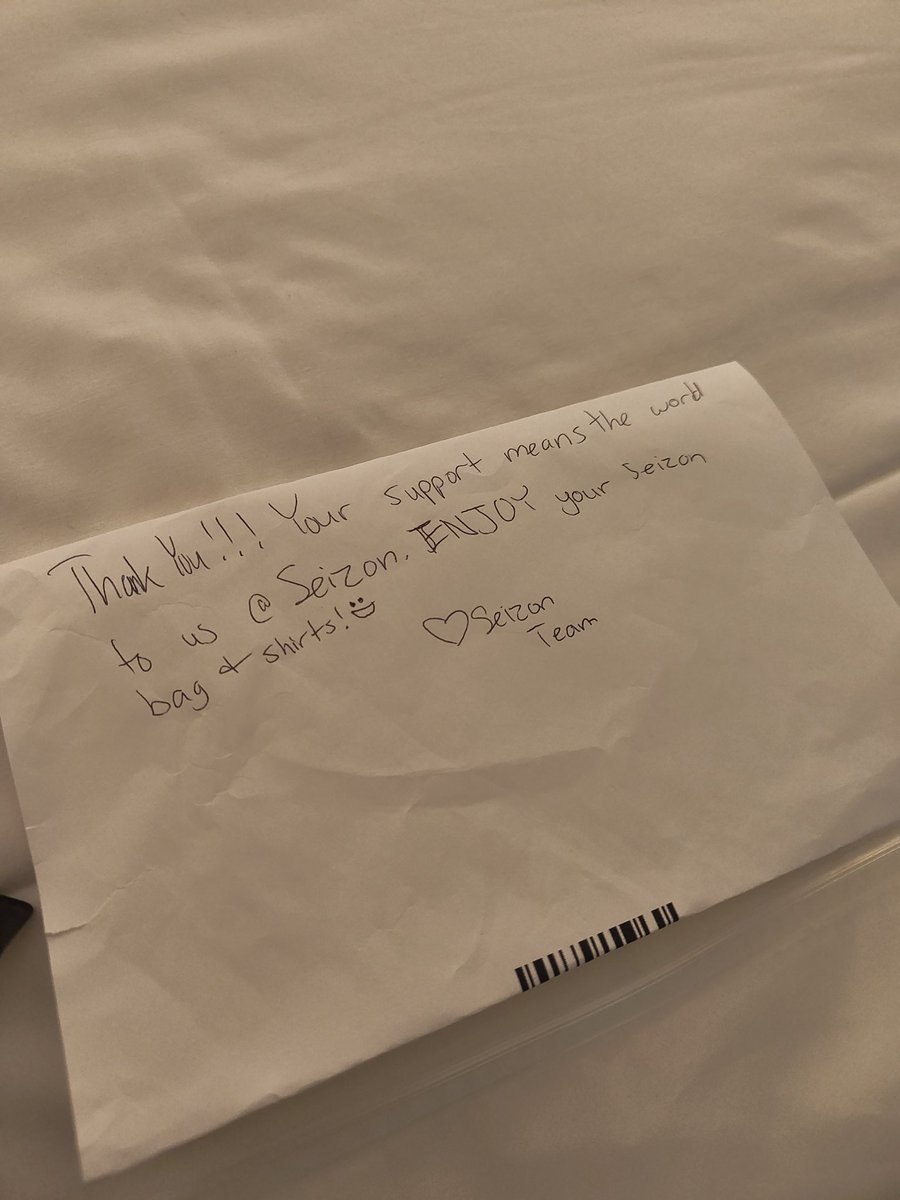 Thank You!!! Your support means the world
to us @ Seizon. ENJOY your Seizon
bag & shirts!
♡ Seizon
Team